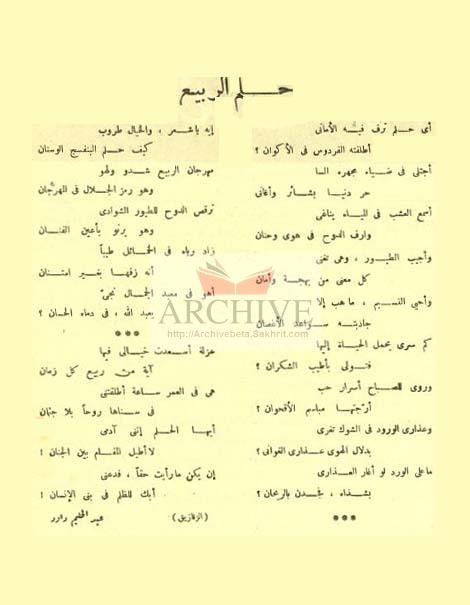 حلم الربيع
أى حلم ترف فيه الأمانى
أطلقته الفردوس فى الأكوان ؟
أجتلى فى ضياء مجهره السا
حر دنيا بشائر وأغانى
أسمع العشب فى المياه يناغى
وارف الدوح فى هوى وحنان
وأجيب الطيور ، وهى تغنى
كل معنى من بهجة وأمان
وأحيى النسيم ، ما هب إلا
جاذبته سواعد الأغصان
كم سرى يحمل الحياة إليها
فتولى بأطيب الشكران ؟
وروى للصباح أسرار حب
أرّجتها مباسم الأقحوان ؟
وعذارى الورود فى الشوك تغرى
بدلال الهوى عذارى الغوانى ؟
ما على الورد لو أغار العذارى
بشذاه ، فجدن بالريحان ؟
***
إيه يا شعر ، والخيال طروب
كيف حلم البنفسج الوسنان
مهرجان الربيع شدو ولهو
وهو رمز الجلال فى المهرجان
ترقص الدوح للطيور الشوادى
وهو يرنو بأعين الفنان
زاد رباه فى الخمائل طيباً
أنه زفها بغير امتنان
أهو فى معبد الجمال نجىّ
يعبد الله ، فى دماء الحسان ؟
***
عزلة أسعدت خيالى فيها
آية من ربيع كل زمان
هى فى العمر ساعة أطلقتنى
فى سناها روحاً بلا جثمان
أيها الحلم إننى آدمى
لا أطيل المقام بين الجنان !
إن يكن ما رأيت حقاً ، فدعنى
أبك للظلم فى بنى الإنسان !
(الزقازيق)
عبد
ARCHIVE
http://Archivebeta.Sakhrit.com